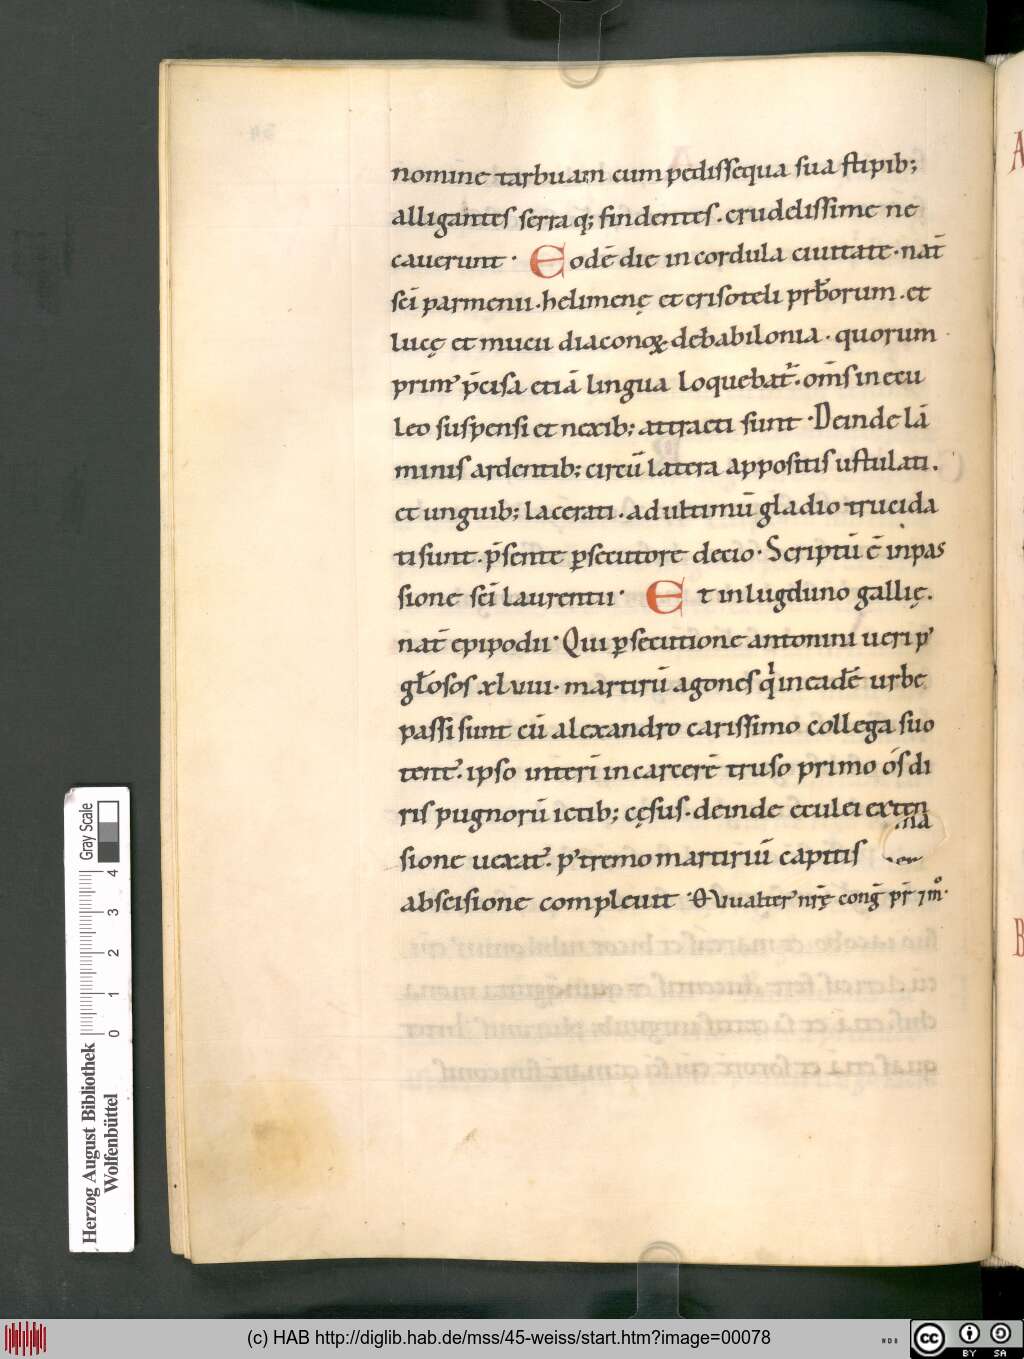 nomine tarbuam cum pedissequa sua stipib;
alligantes serra q; findentes. crudelissime ne
cauerunt· Eodē die in cordula ciuitate·nat̄
sc̄i parmenii·helimenę et crisoteli prb̄orum·et
lucę et mucii diaconoꝝ debabilonia· quorum
prim᷒ p̄cisa etiā lingua loquebat᷑. om̄s in ecu
leo suspensi et nexib; attracti sunt·Deinde lā
minis ardentib; circū latera appositis ustulati.
et unguib; lacerati. ad ultimū gladio trucida
ti sunt. p̄sente ꝑsecutore decio· Scriptū ē inpas
sione sc̄i laurentii· Et in lugduno gallię.
nat̄ epipodii· Qui ꝑsecutione antonini ueri p᷒
gl̄osos xlviii· martirū agones q̇ in eadē urbe
passi sunt cū alexandro carissimo collega suo
tent᷒. ipso interī in carcerē truso primo os di
ris pugnorū ictib; cęsus. deinde eculei exten
sione uexat᷒. p᷒tremo martiriū capitis
abscisione compleuit· Vualter᷒ nrę̄ conḡ pr̄ ⁊ m̊·
Gray Scale
4
3
2
1
0
Herzog August Bibliothek
Wolfenbüttel
(c) HAB http://diglib.hab.de/mss/45-weiss/start.htm?image=00078
WDB
cc
BY SA